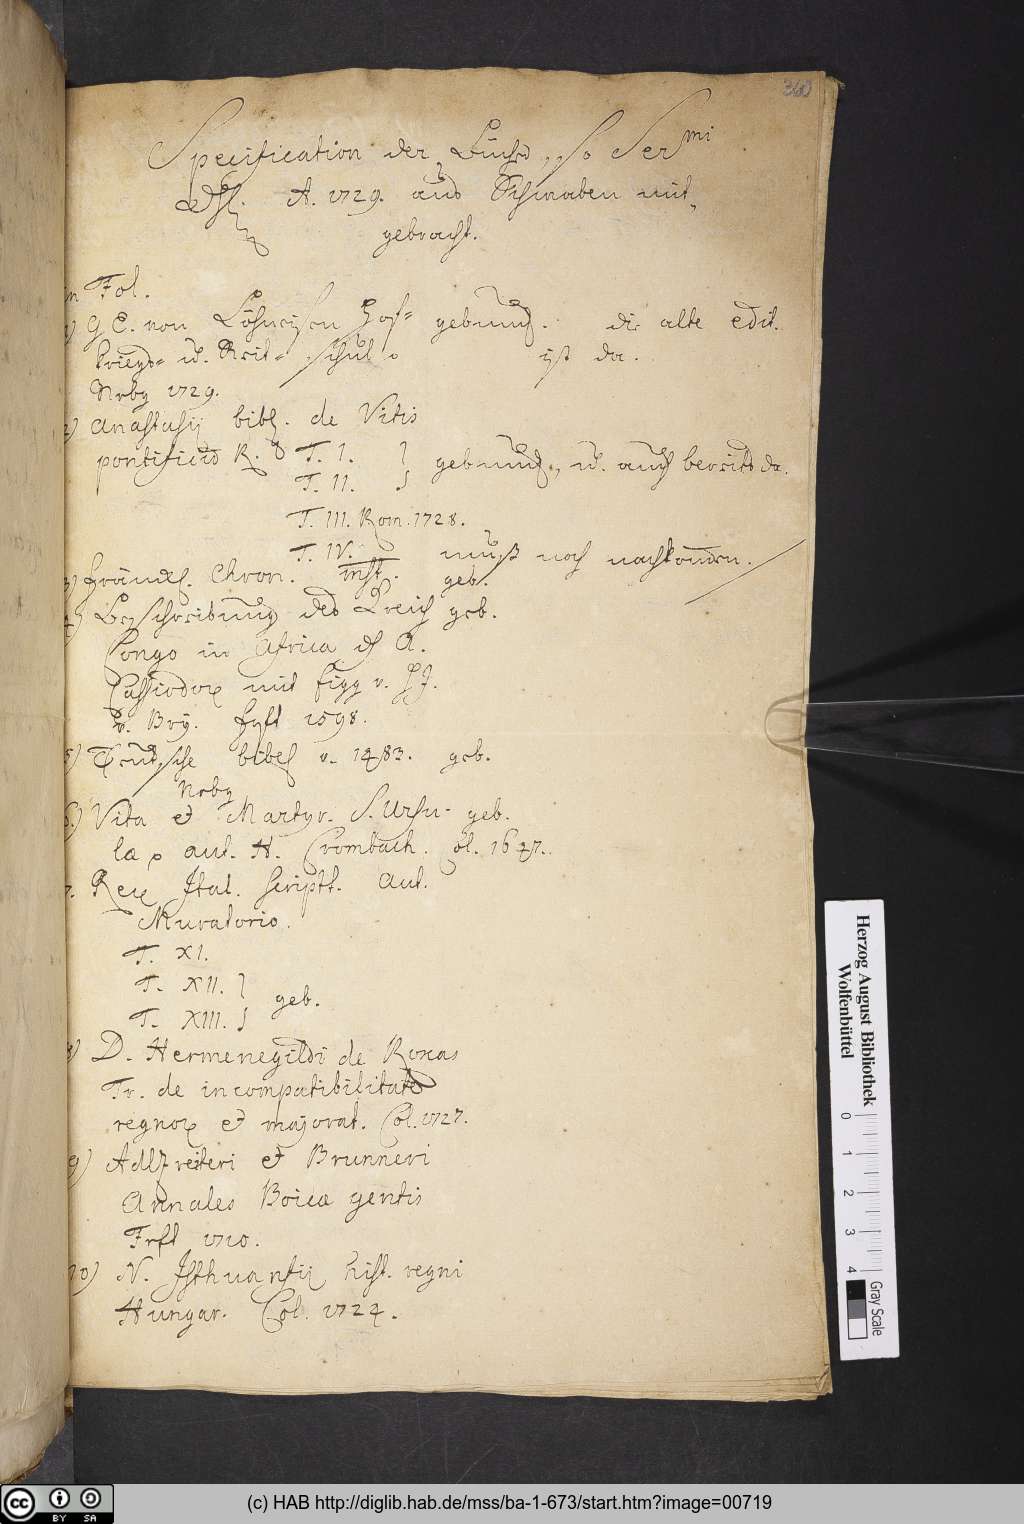 360
Specification der Bücher, so Ser mi
A. 1729. aus Schwaben mit-
gebracht.
in Fol.
1) G E. von Löhneisen Hof= gebund. die alte edit.
kriegs= u. Reit- schul ist da.
Nrbg 1729.
2) Anastasij bibl. de Vitis
pontificum R. T. I. } gebund., u. auch bereits da.
T. II.
T. III. Rom. 1728.
T. IV. muß noch nachkommen.
3) Fränck. Chron. mst. geb.
4) Beschreibung des Königreich geb.
Congo in Africa A.
Cassiodor mit figg v.
v. Bry. Fft 1598.
5) Teutsche bibel v. 1483. geb.
Nrbg
6.) Vita et Martyr. S. Ursu- geb.
læ aut. H. Crombach. Col. 1647.
7. Rer Ital. Scriptt. Aut.
Muratorio.
T. XI.
T. XII. } geb.
T. XIII.
8) D. Hermenegildi de Roxas
Tr. de incompatibilitate
regnor et majorat. Col. 1727.
9) Adlzreiteri et Brunneri
Annales Boicæ gentis
Frft 1710.
10) N. Isthuanfij hist. regni
Hungar. Col. 1724.
Herzog August Bibliothek
Wolfenbüttel
0 1 2 3 4
Gray Scale
BY SA
(c) HAB http://diglib.hab.de/mss/ba-1-673/start.htm?image=00719